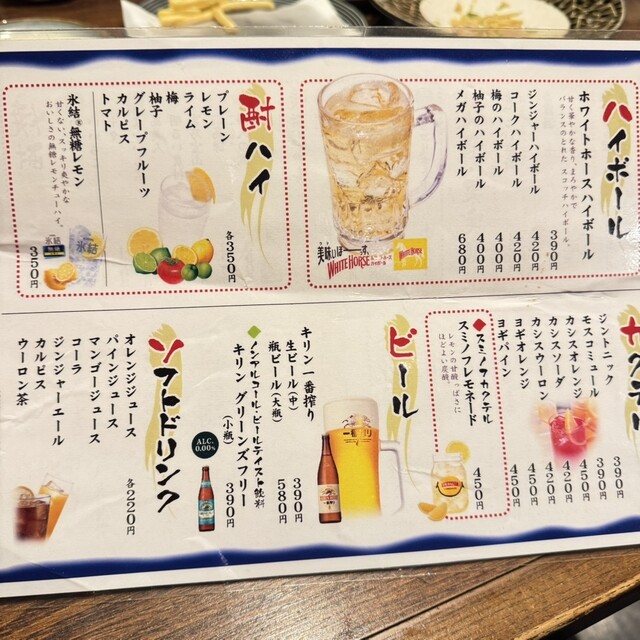 ハイボール
ホワイトホースハイボール
甘く華やかな香り、まろやかで
バランスのとれた スコッチハイボール。
390円
ジンジャーハイボール 420円
コークハイボール 420円
梅のハイボール 400円
柚子のハイボール 400円
メガハイボール 680円
美味しいほーす。
WHITE HORSE
ハイボール
WHITE HORSE
酎ハイ
プレーン
レモン
ライム
梅
柚子
グレープフルーツ
カルピス
トマト
各350円
氷結®無糖レモン
甘くない、スッキリ爽やかな
おいしさの無糖レモンチューハイ。
氷結
350円
ジントニック 390円
モスコミュール 390円
カシスオレンジ 450円
カシスソーダ 420円
カシスウーロン 420円
ヨギオレンジ 450円
ヨギパイン 450円
◆スミノフカクテル
スミノフレモネード
レモンの甘酸っぱさに
ほどよい炭酸。
450円
ビール
キリン一番搾り
生ビール(中) 390円
瓶ビール(大瓶) 580円
◆ノンアルコール・ビールテイスト飲料
キリン グリーンズフリー
(小瓶) 390円
一番搾り
ALC.
0.00%
ソフトドリンク
オレンジジュース
パインジュース
マンゴージュース
コーラ
ジンジャーエール
カルピス
ウーロン茶
各220円